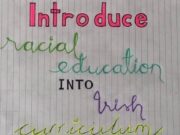 Introduce
racial
education
INTO
Irish
curriculum